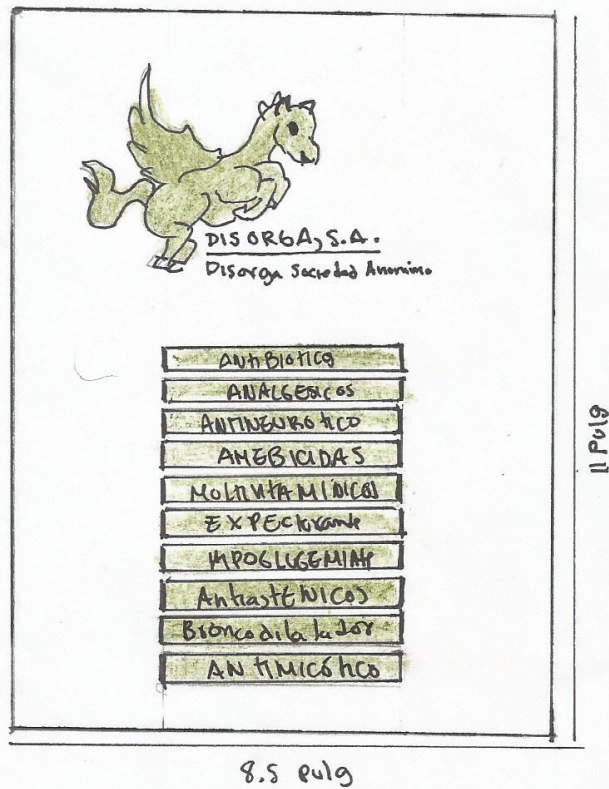 DISORGA, S.A.
Disorga Sociedad Anonimo
ANtiBiotico
ANALGESICOS
ANTINEUROtICO
AMEBICIDAS
MOLtiVItAMINICOS
EXPECtorante
HIPOGLUGEMIAnt
AntiastENICOS
Broncodilatador
ANtIMICótICO
11 Pulg
8.5 Pulg